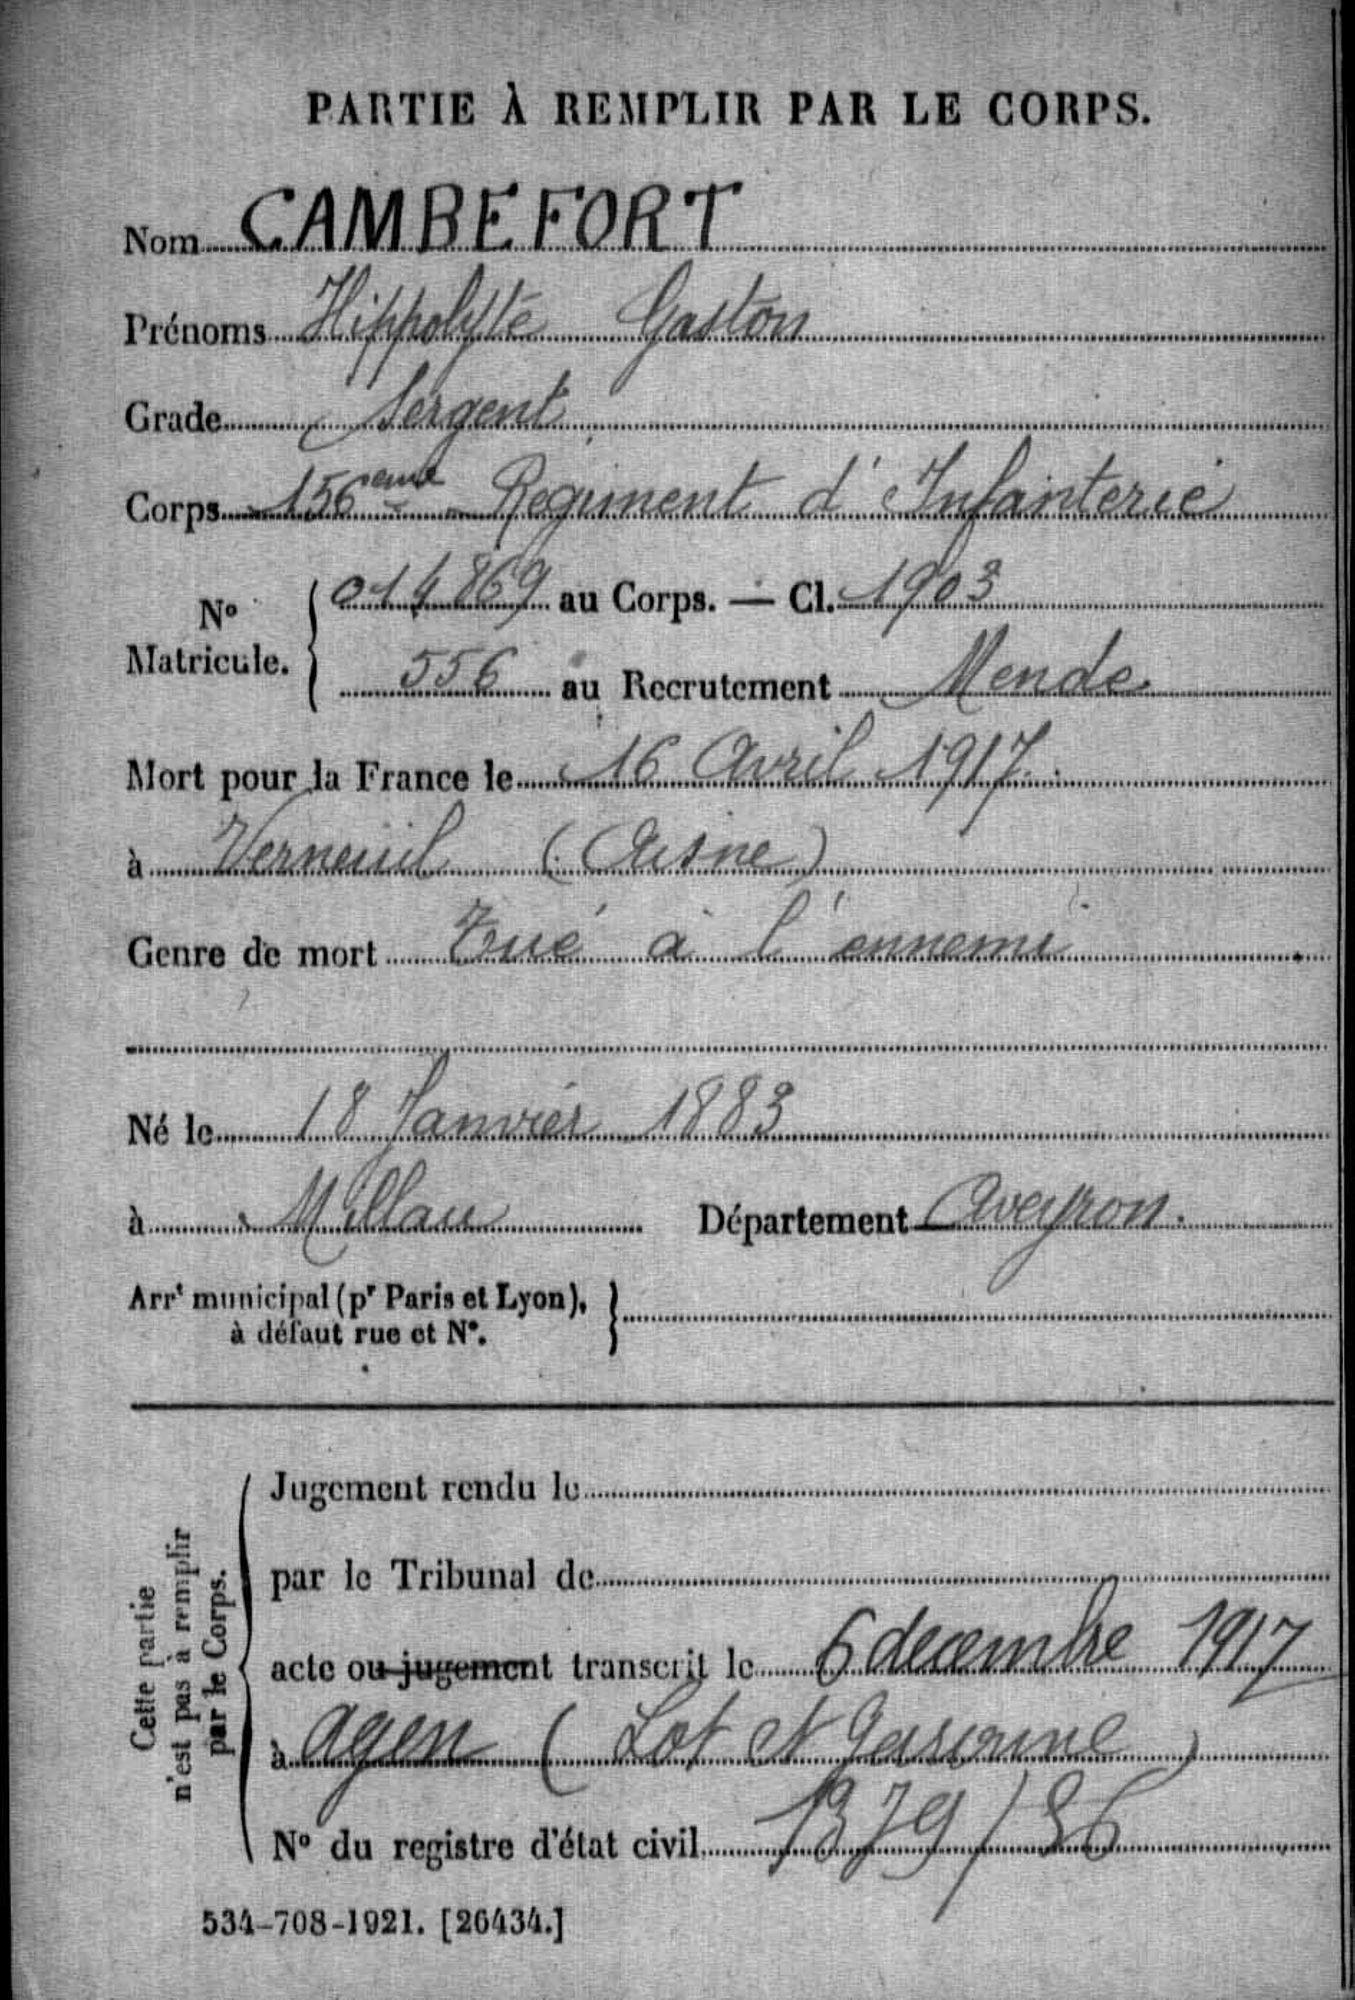 PARTIE À REMPLIR PAR LE CORPS.
Nom CAMBEFORT
Prénoms Hippolyte Gaston
Grade Sergent
Corps 156eme Regiment d'Infanterie
N° Matricule. 014869 au Corps. — Cl. 1903
556 au Recrutement Mende
Mort pour la France le 16 Avril 1917
à Verneuil (Aisne)
Genre de mort Tué à l'ennemi
Né le 18 Janvier 1883
à Millau Département Aveyron.
Arrt municipal (pr Paris et Lyon),
à défaut rue et N°.
Cette partie
n'est pas à remplir
par le Corps.
Jugement rendu le
par le Tribunal de
acte ou jugement transcrit le 6 decembre 1917
à Agen (Lot et Garonne)
N° du registre d'état civil 1379/86
534-708-1921. [26434.]